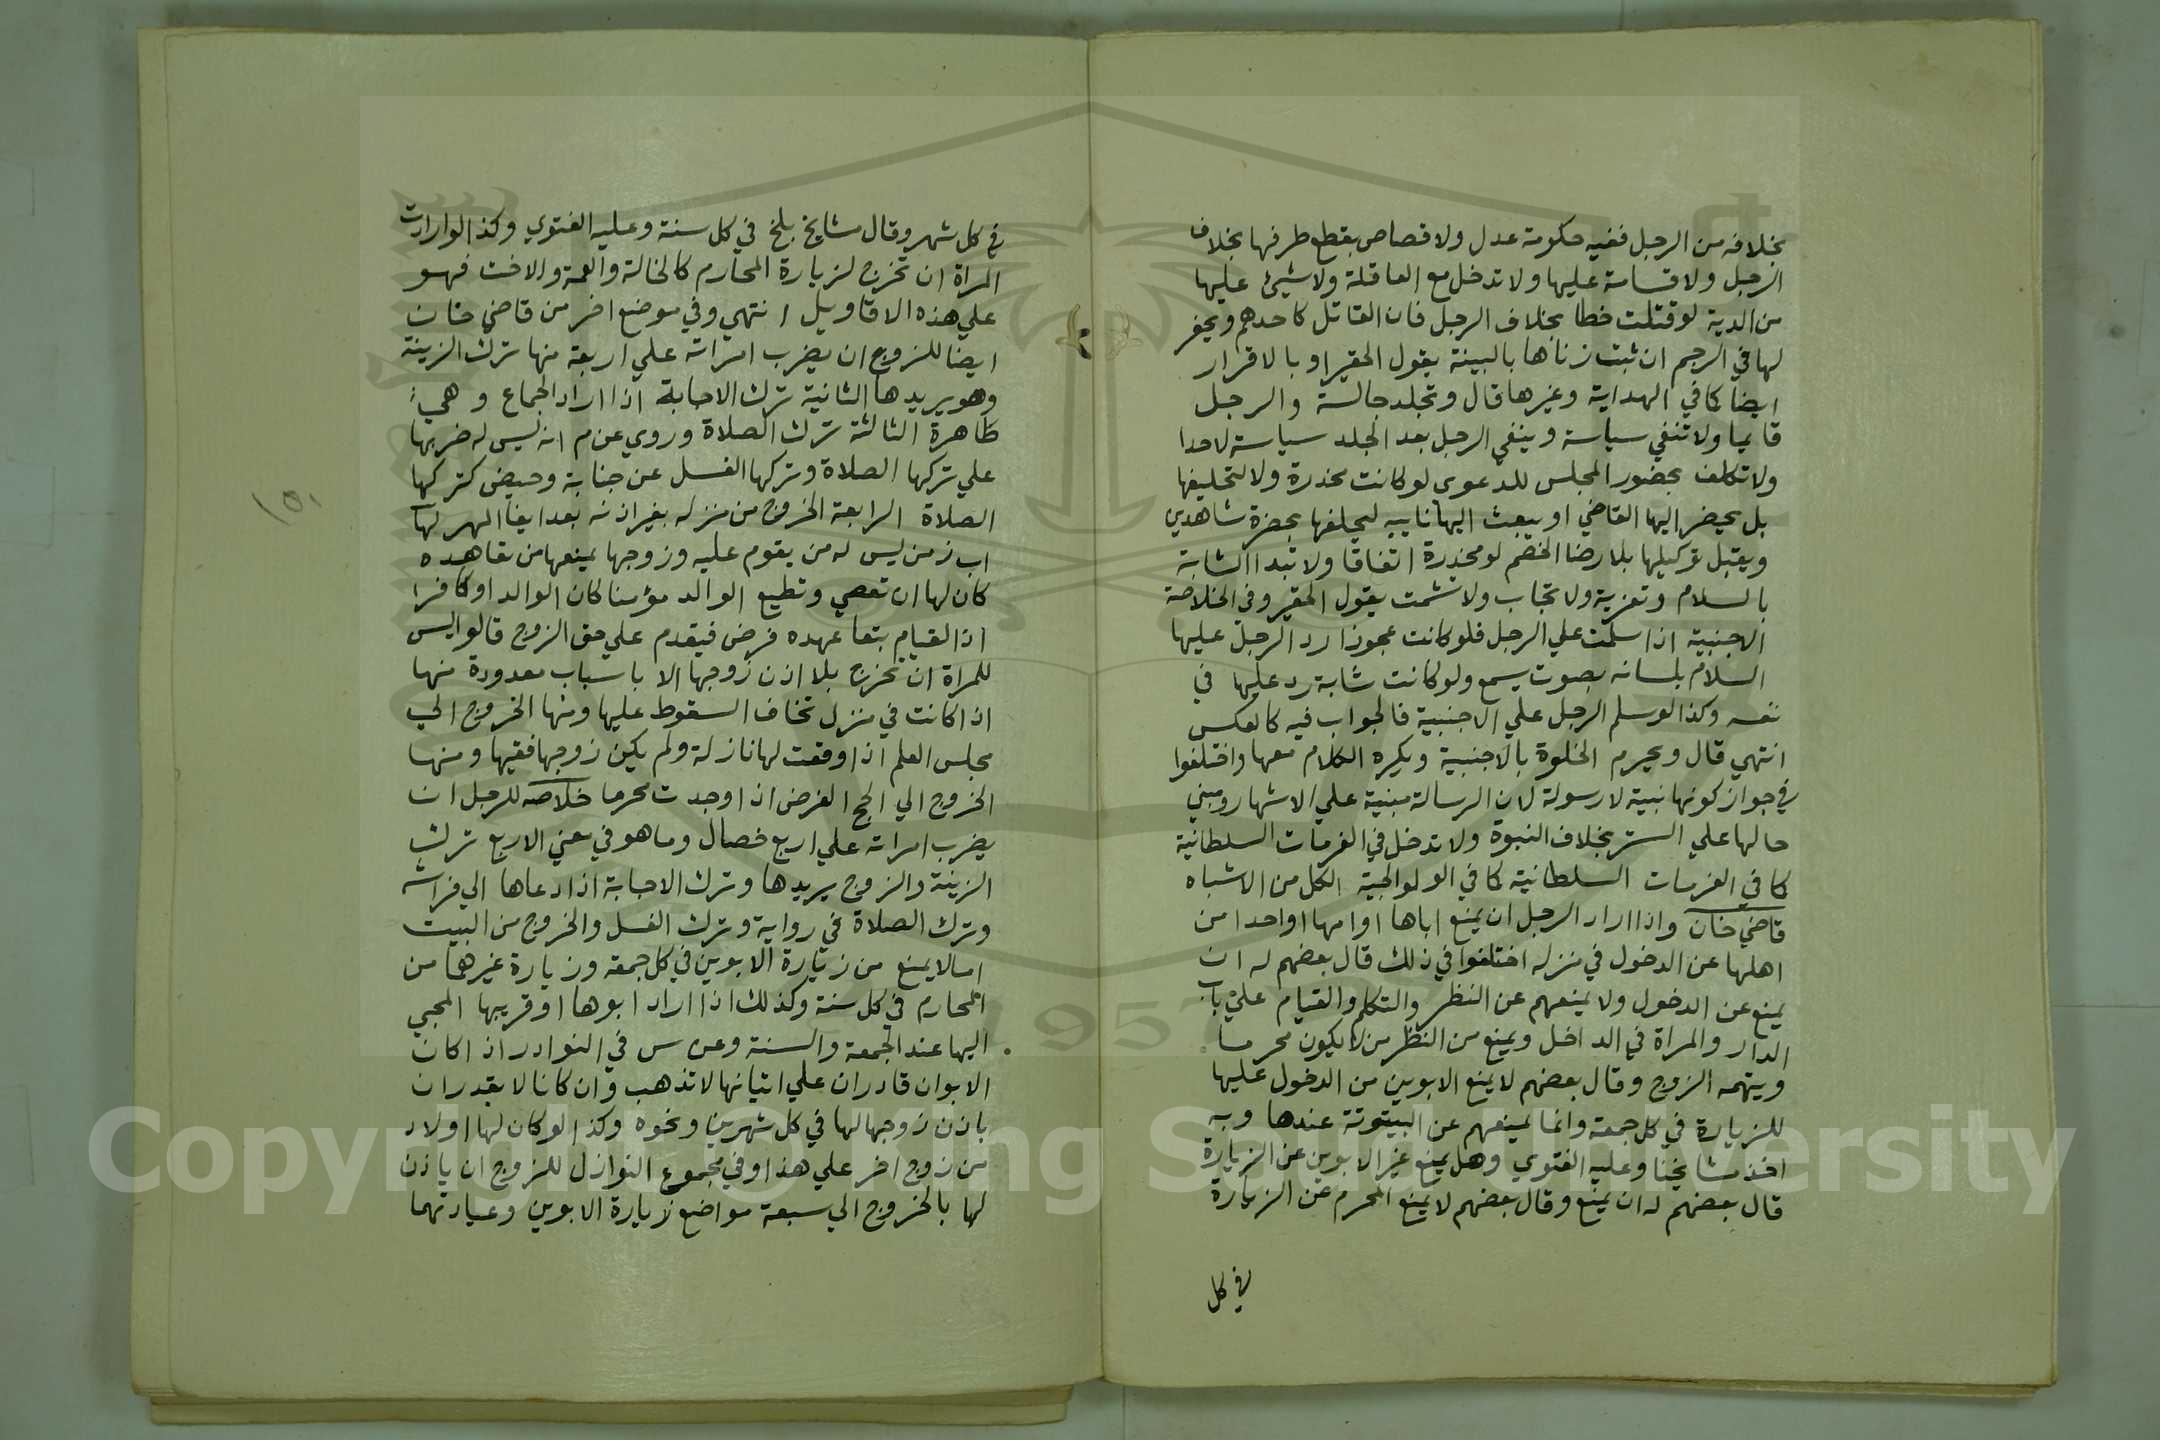 بخلافه من الرجل ففيه حكومة عدل ولا قصاص بقطع طرفها بخلاف
الرجل ولا قسامة عليها ولا تدخل مع العاقلة ولا شيئ عليها
من الدية لو قتلت خطا بخلاف الرجل فان القاتل كاحدهم ويحفر
لها في الرجم ان ثبت زناها بالبينة يقول الحقير او بالاقرار
ايضا كما في الهداية وغيرها قال وتجلد جالسة والرجل
قايما ولا تنفي سياسة وينفي الرجل بعد الجلد سياسة لا حدا
ولا تكلف بحضور المجلس للدعوى لو كانت مخدرة ولا لتحليفها
بل يحضر اليها القاضي او يبعث اليها نايبه ليحلفها بحضرة شاهدين
ويقبل توكيلها بلا رضا الخصم لو مخدرة اتفاقا ولا تبدا الشابة
بالسلام وتعزية ولا تجاب ولا تشمت يقول الحقير وفي الخلاصة
الاجنبية اذا سلمت علي الرجل فلو كانت عجوزا رد الرجل عليها
السلام بلسانه بصوت يسمع ولو كانت شابة رد عليها في
نفسه وكذا لو سلم الرجل علي الاجنبية فالجواب فيه كالعكس
انتهي قال ويحرم الخلوة بالاجنبية ويكره الكلام معها واختلفوا
في جواز كونها نبية لا رسولة لان الرسالة مبنية علي الاشهار ومبني
حالها علي الستر بخلاف النبوة ولا تدخل في الغرمات السلطانية
كما في الغرمات السلطانية كما في الولوالجية الكل من الاشباه
قاضي خان واذا اراد الرجل ان يمنع اباها او امها او احدا من
اهلها عن الدخول في منزله اختلفوا في ذلك قال بعضهم له ان
يمنع عن الدخول ولا يمنعهم عن النظر والتكلم والقيام علي باب
الدار والمراة في الداخل ويمنع من النظر من لا يكون محرما
ويتهمه الزوج وقال بعضهم لا يمنع الابوين من الدخول عليها
للزيارة في كل جمعة وانما يمنعهم عن البيتوتة عندها وبه
اخذ مشايخنا وعليه الفتوي وهل يمنع غير الابوين عن الزيارة
قال بعضهم له ان يمنع وقال بعضهم لا يمنع المحرم عن الزيارة
في كل
في كل شهر وقال مشايخ بلخ في كل سنة وعليه الفتوي وكذا لو ارادت
المراة ان تخرج لزيارة المحارم كالخالة والعمة والاخت فهو
علي هذه الاقاويل انتهي وفي موضع اخر من قاضي خان
ايضا للزوج ان يضرب امراته علي اربعة منها ترك الزينة
وهو يريدها الثانية ترك الاجابة اذا اراد الجماع وهي
طاهرة الثالثة ترك الصلاة وروي عن م انه ليس له ضربها
علي تركها الصلاة وتركها الغسل عن جنابة وحيض كتركها
الصلاة الرابعة الخروج من منزله بغير اذنه بعد ايفا المهر لها
اب زمن ليس له من يقوم عليه وزوجها يمنعها من تعاهده
كان لها ان تعصي وتطيع الوالد مؤمنا كان الوالد او كافرا
اذ القيام بتعاهده فرض فيقدم علي حق الزوج قالوا ليس
للمراة ان تخرج بلا اذن زوجها الا باسباب معدودة منها
اذا كانت في منزل تخاف السقوط عليها ومنها الخروج الي
مجلس العلم اذا وقعت لها نازلة ولم يكن زوجها فقيها ومنها
الخروج الي الحج الفرض اذا وجدت محرما خلاصه للرجل ان
يضرب امراته علي اربع خصال وما هو في معني الاربع ترك
الزينة والزوج يريدها وترك الاجابة اذا دعاها الي فراشه
وترك الصلاة في رواية وترك الغسل والخروج من البيت
اما لا يمنع من زيارة الابوين في كل جمعة وزيارة غيرهما من
المحارم في كل سنة وكذلك اذا اراد ابوها او قريبها المجي
اليها عند الجمعة والسنة وعن س في النوادر اذا كان
الابوان قادران علي اتيانها لا تذهب وان كانا لا يقدران
باذن زوجها لها في كل شهرين ونحوه وكذا لو كان لها اولاد
من زوج اخر علي هذا وفي مجموع النوازل للزوج ان ياذن
لها بالخروج الي سبعة مواضع زيارة الابوين وعيادتهما
١٥١
Copyright © King Saud University
1957